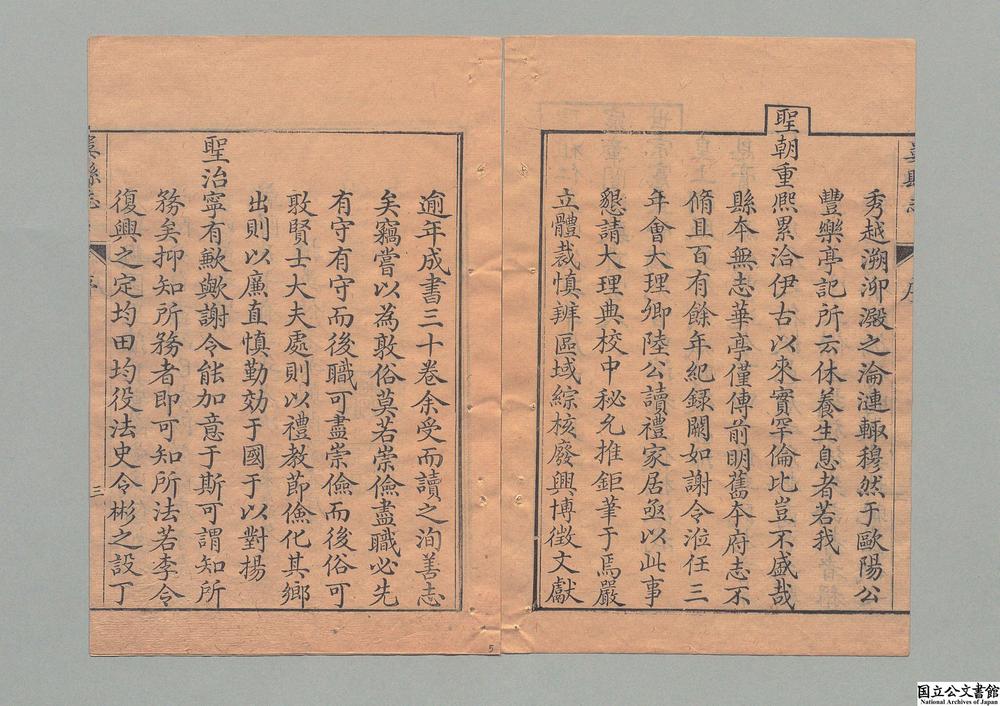 秀越溯泖澱之淪漣輙穆然于歐陽公
豐樂亭記所云休養生息者若我
聖朝重熈累洽伊古以來實罕倫比豈不盛哉
縣本無志華亭僅傳前明舊本府志不
脩且百有餘年紀録闕如謝令涖任三
年會大理卿陸公讀禮家居亟以此事
懇請大理典校中秘允推鉅筆于焉嚴
立體裁慎辨區域綜核廢興博徴文獻
逾年成書三十卷余受而讀之洵善志
矣竊嘗以為敦俗莫若崇儉盡職必先
有守有守而後職可盡崇儉而後俗可
敦賢士大夫處則以禮教節儉化其鄉
出則以廉直慎勤効于國于以對揚
聖治寧有歉歟謝令能加意于斯可謂知所
務矣抑知所務者即可知所法若李令
復興之定均田均役法史令彬之設丁
婁縣志
序
三
5
国立公文書館
National Archives of Japan